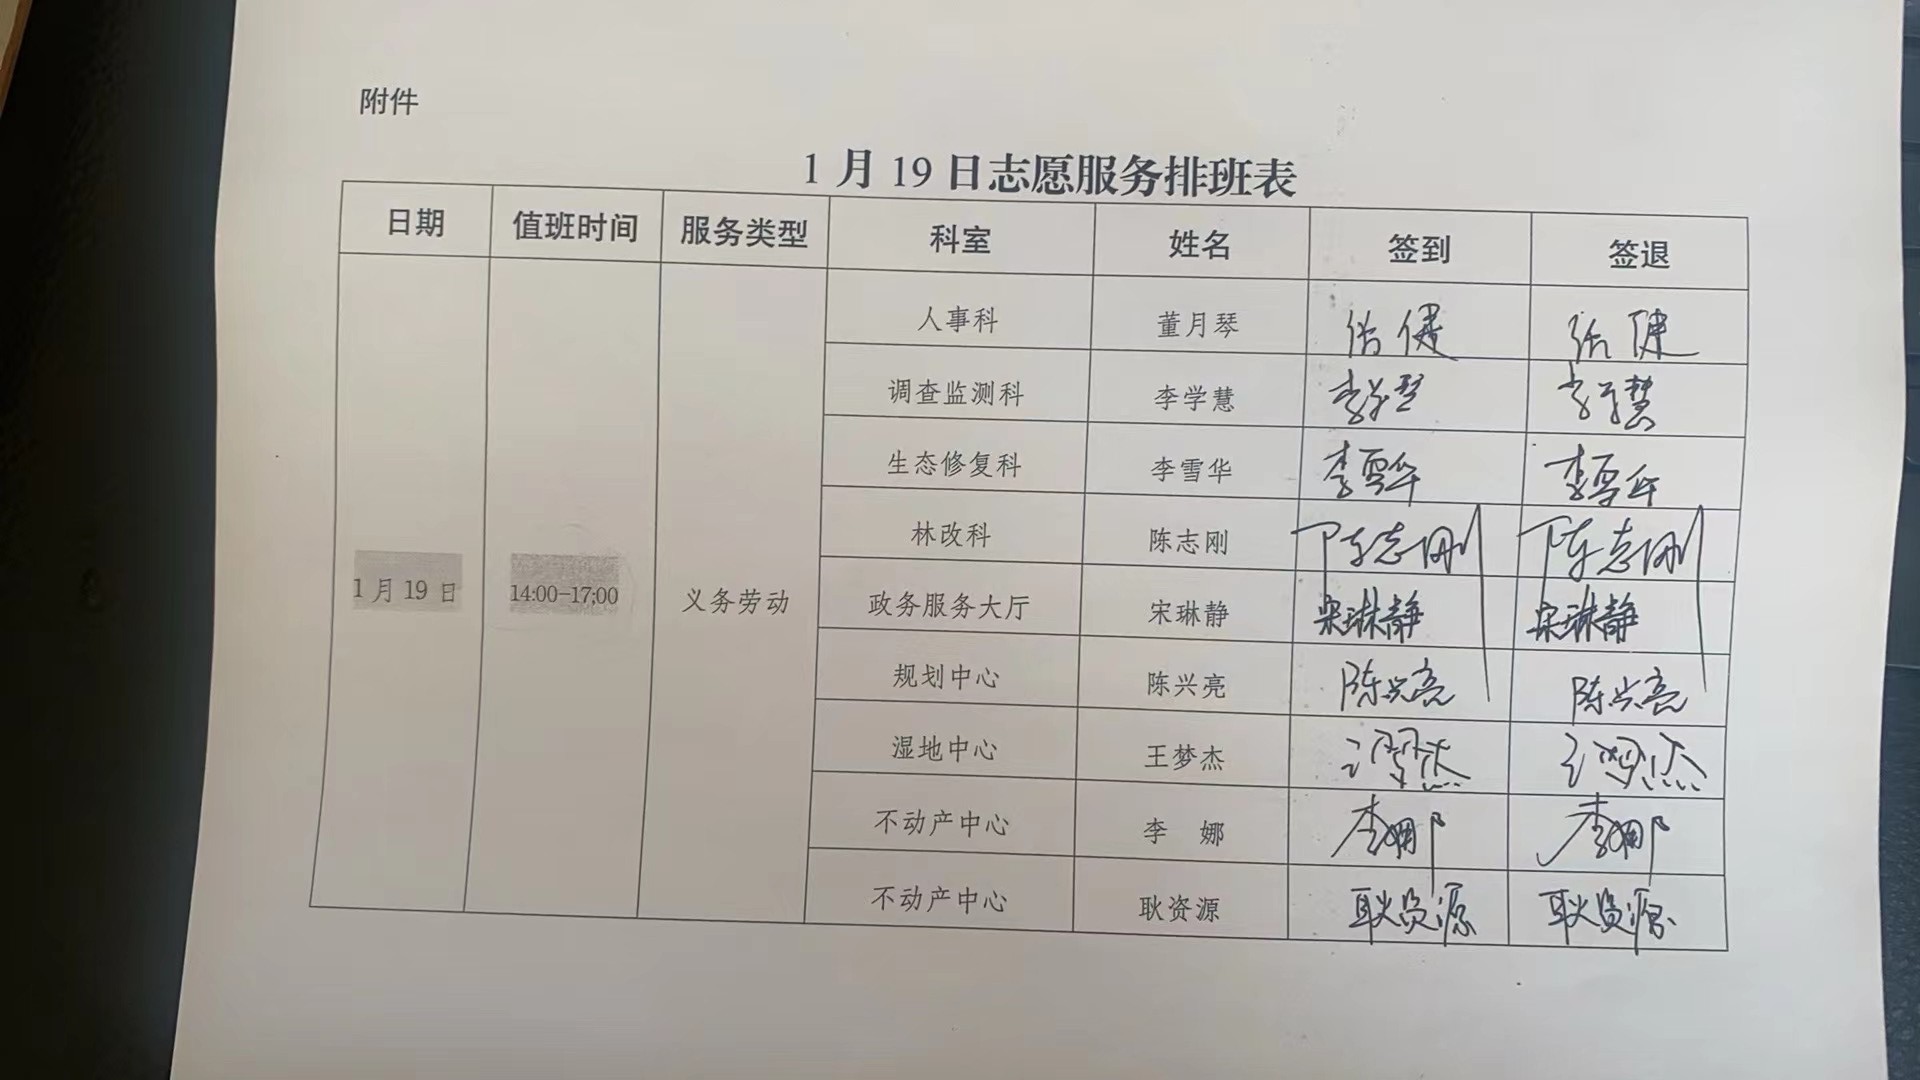 附件
1月19日志愿服务排班表
日期 值班时间 服务类型 科室 姓名 签到 签退
1月19日 14:00-17:00 义务劳动
人事科 董月琴 健 健
调查监测科 李学慧 李学慧 李学慧
生态修复科 李雪华 李雪华 李雪华
林改科 陈志刚 陈志刚 陈志刚
政务服务大厅 宋琳静 宋琳静 宋琳静
规划中心 陈兴亮 陈兴亮 陈兴亮
湿地中心 王梦杰 王梦杰 王梦杰
不动产中心 李 娜 李娜 李娜
不动产中心 耿资源 耿资源 耿资源